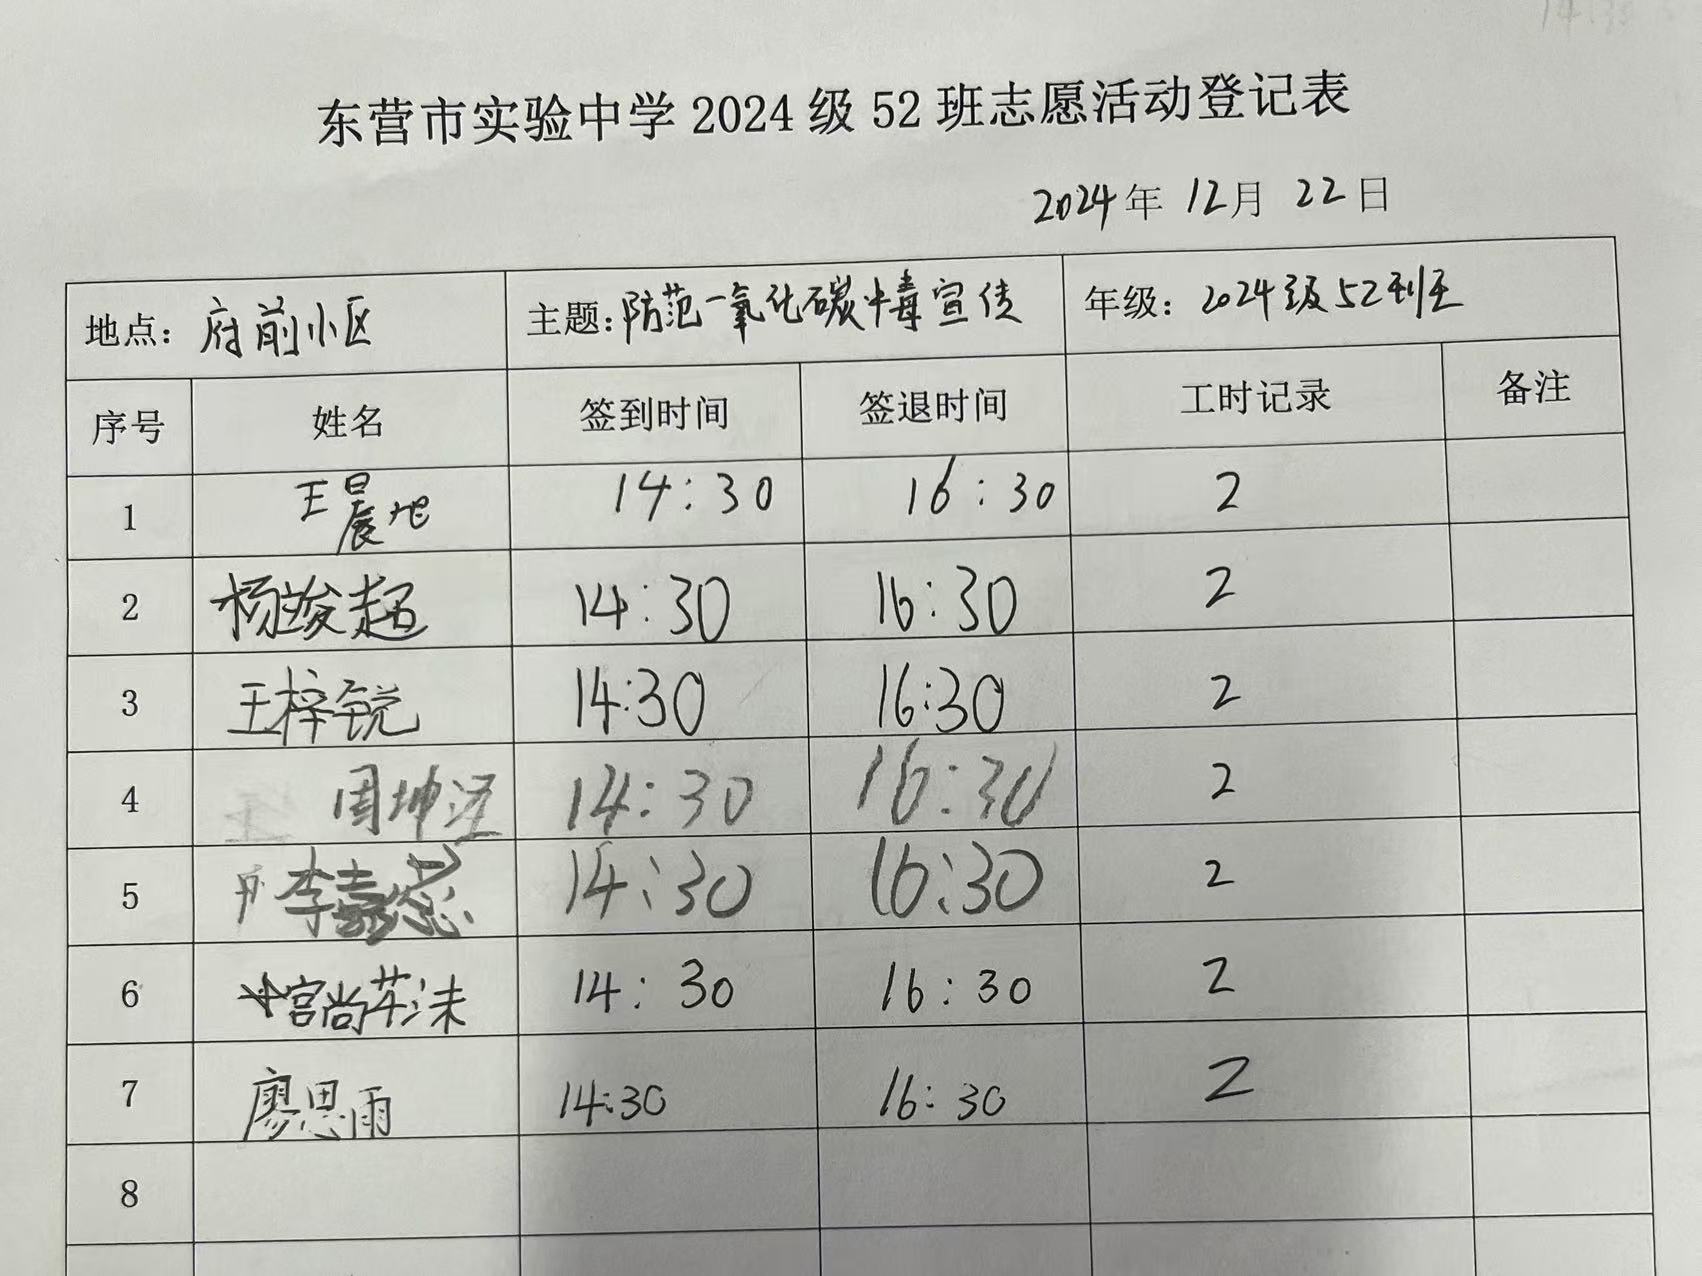 东营市实验中学 2024 级 52 班志愿活动登记表
2024 年 12 月 22 日
地点: 府前小区 主题: 防范一氧化碳中毒宣传 年级: 2024级52班
序号 姓名 签到时间 签退时间 工时记录 备注
1 王晨旭 14:30 16:30 2
2 杨竣超 14:30 16:30 2
3 王梓锐 14:30 16:30 2
4 周坤 14:30 16:30 2
5 李嘉 14:30 16:30 2
6 宫尚芊沫 14:30 16:30 2
7 廖思雨 14:30 16:30 2
8